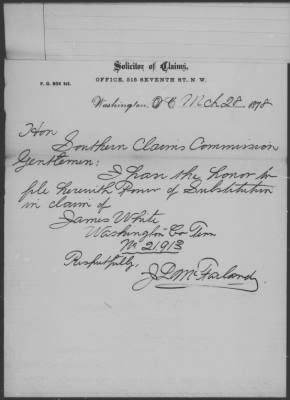 Solicitor of Claims,
OFFICE, 516 SEVENTH ST. N. W.
P. O. BOX
Washington, D C Mch 28 1878
Hon
Southern Claims Commission
Gentlemen:
I have the honor to
file herewith Power of Substitution
in claim of
James White
Washington Co Tenn
No 21913
Respectfully,
J D McFarland